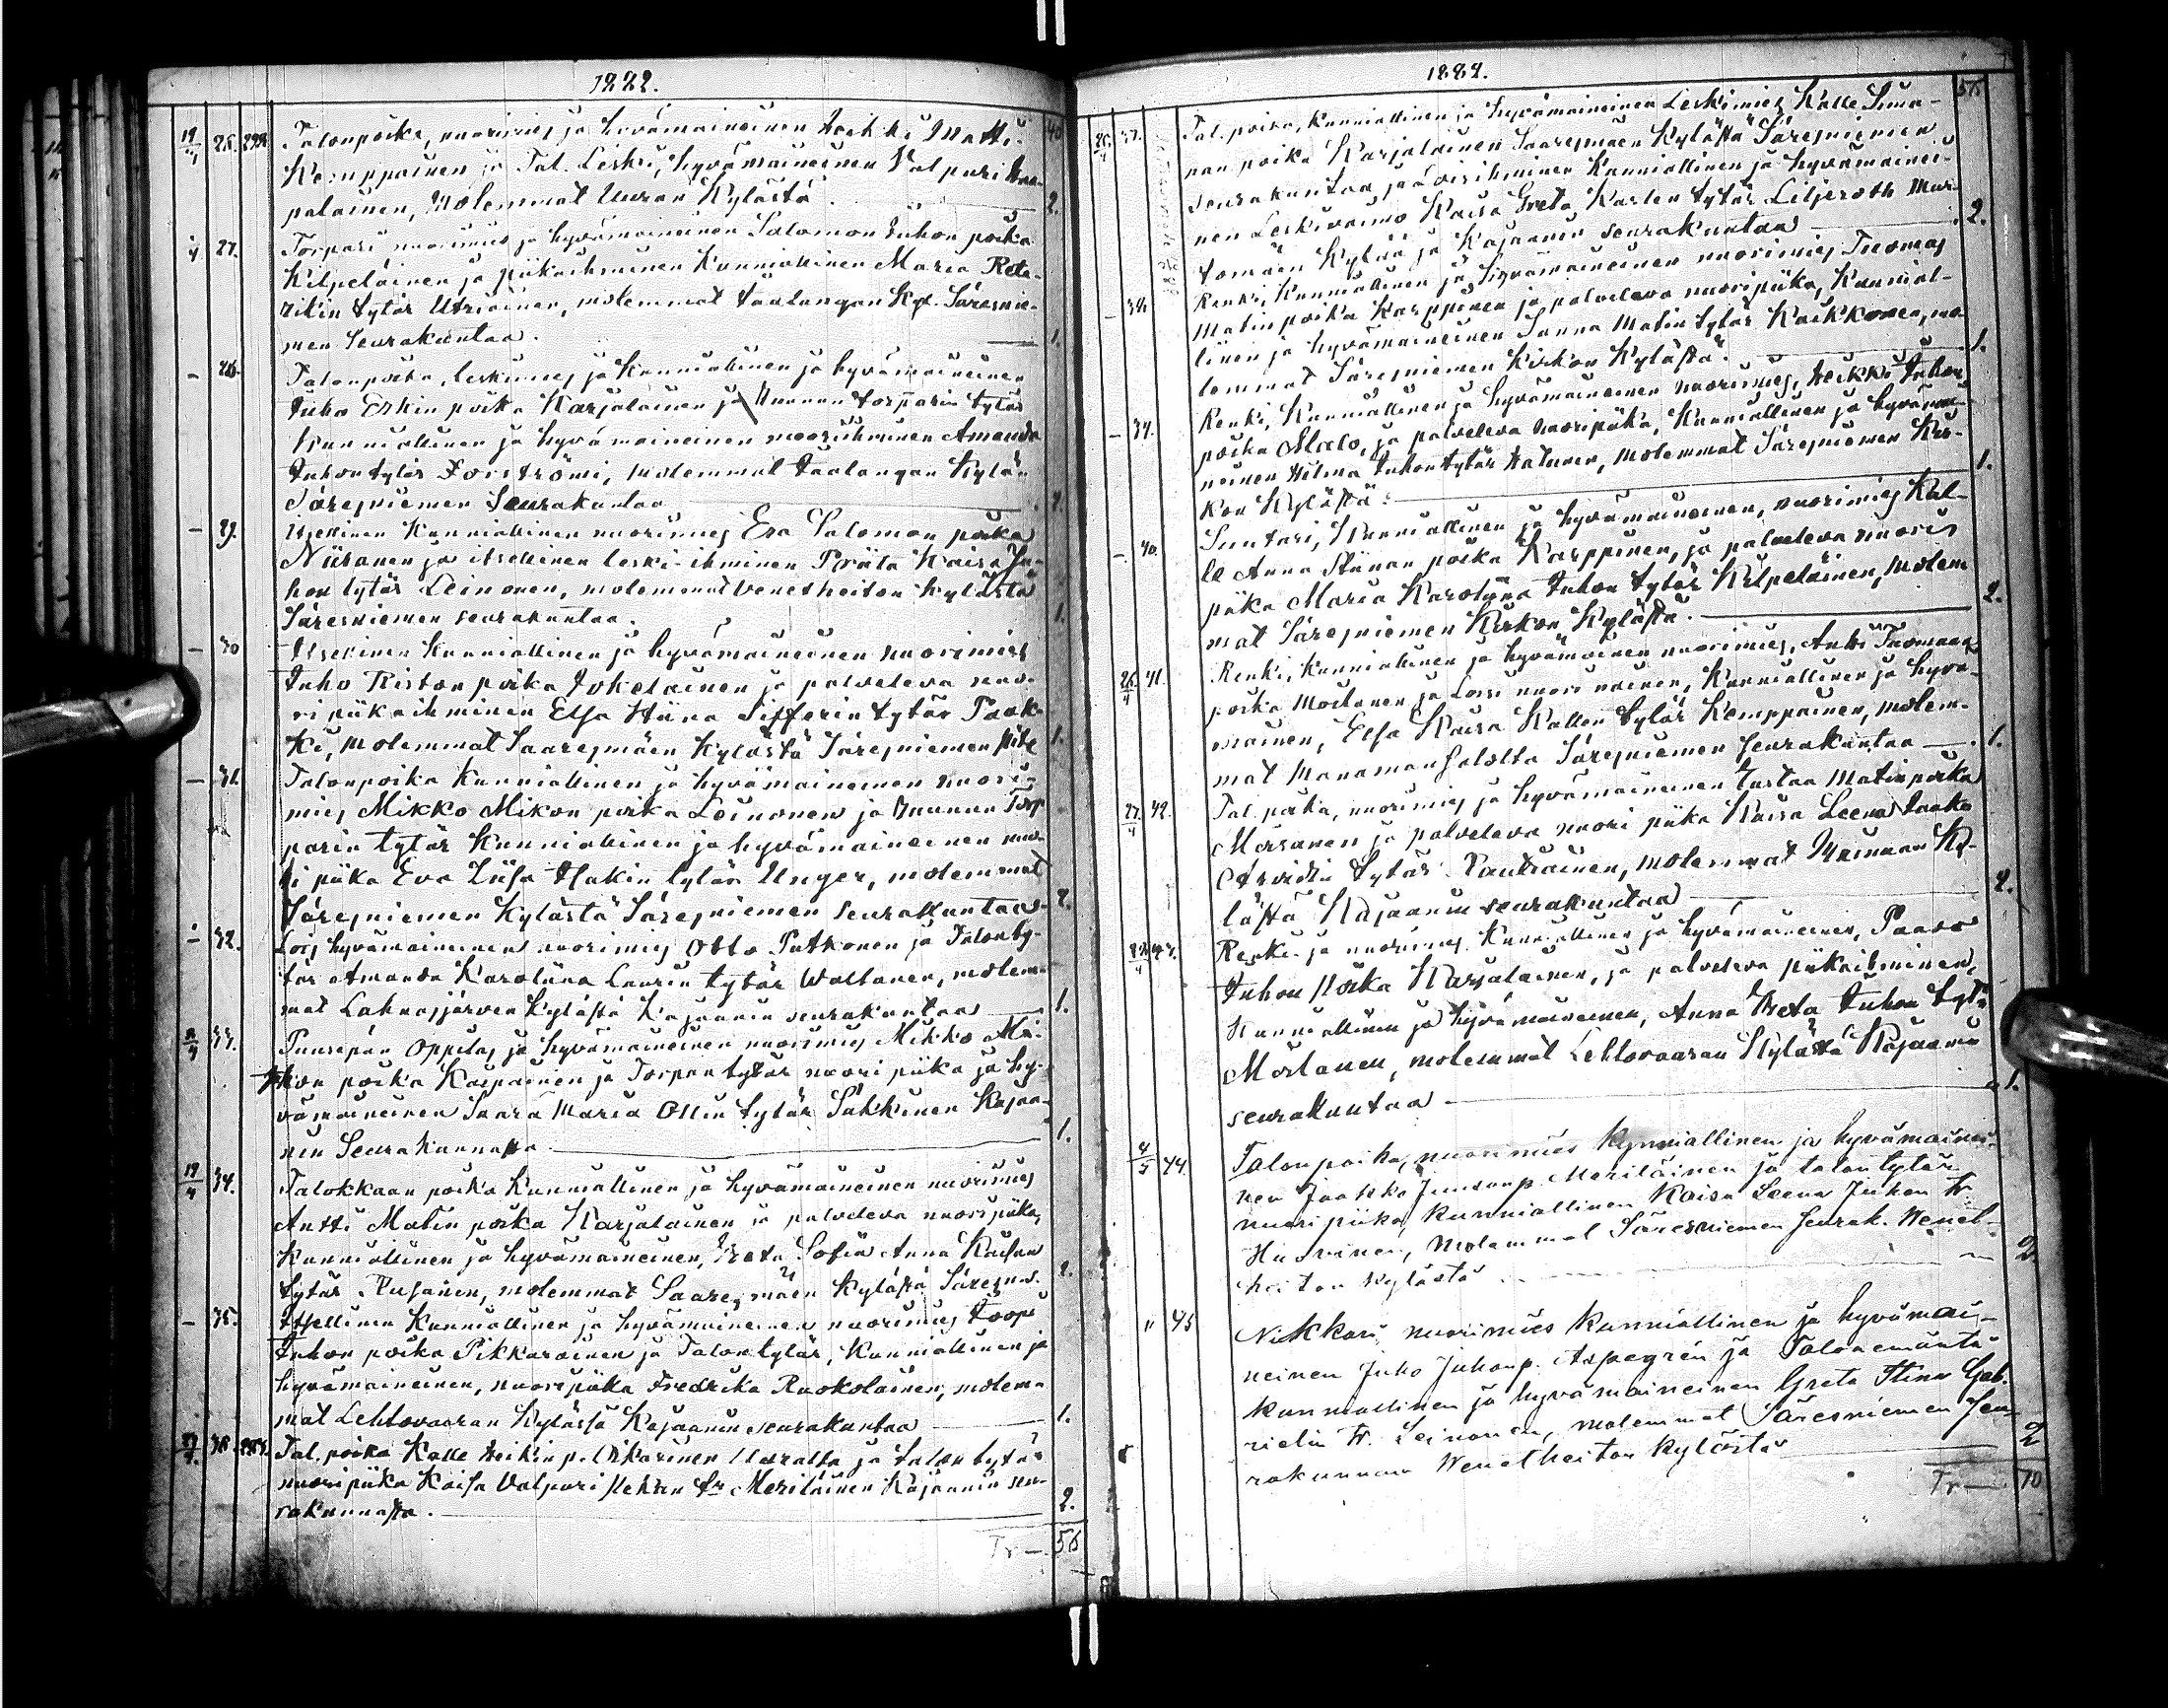 1882.
19/4 26. 299. Talonpoika, nuorimies ja hyvämaineinen Heikki Matti- 40
Kemppainen ja Tal. Leski, hyvämaineinen Valpuri
palainen, Molemmat Uuran Kylästä 2.
4 27. Torpari nuorimies ja hyvämaineinen Salomon Juhon poika
Kilpeläinen ja piikaihminen Kunniallinen Maria Rete-
rikin tytär Utriainen, molemmat Jaalangan Kyl. Säresnie-
men Seurakuntaa. 1.
– 28. Talonpoika, leskimies ja Kunniallinen ja hyvämaineinen
Juho Erkin poika Karjalainen ja Kunnan torparin tytär
Kunniallinen ja hyvämaineinen nooriihminen Amanda
Juhontytär Forströmi, molemmat Jaalangan Kylän
Säresniemen Seurakuntaa 2.
– 29. Itsellinen Kunniallinen nuorimies Esa Salomon poika
Niiranen ja itsellinen leski-ihminen Priita Kaisa Ju-
hon tytär Leinonen, molemmat Venetheiton Kylästä
Säresniemen seurakuntaa. 1.
– 30 Itsellinen Kunniallinen ja hyvämaineinen nuorimies
Juho Ristonpoika Jokelainen ja palveleva nuo-
ri piikaihminen Elsa Stiina Sifferin tytär Paak-
ki, Molemmat Saaresmäen Kylästä Säresniemen Pit. 1.
– 31. Talonpoika Kunniallinen ja hyvämaineinen nuori-
mies Mikko Mikon poika Leinonen ja Kunnan Torp
parin tytär Kunniallinen ja hyvämaineinen nuo-
ri piika Eva Liisa Hakin tytär Unger, molemmat
Säresniemen Kylästä Säresniemen Seurakuntaa 2.
– 32. Lois hyvämaineinen nuorimies Otto Putkonen ja Talonty-
tär Amanda Karoliina Laurin tytär Waltanen, molem-
mat Lahnasjärven Kylästä Kajaanin seurakuntaa 1.
33. Puusepän Oppilas ja hyvämaineinen nuorimies Mikko Mi-
kon poika Karppinen ja Torpan tytär nuori piika ja hy-
vämaineinen Saara Maria Ollin tytär Säkkinen Kajaa-
nin Seurakunnasta 1.
19/4 34. Talokkaan poika Kunniallinen ja hyvämaineinen nuorimies
Antti Matin poika Karjalainen ja palveleva nuoripiika,
Kunniallinen ja hyvämaineinen, Greta Sofia Anna Kaisan
tytär Rusanen, molemmat Saaresmäen Kylästä Säresn. 2.
– 35. Itsellinen Kunniallinen ja hyvämaineinen nuorimies Joopi
Juhon poika Pikkarainen ja Talon tytär, Kunniallinen ja
hyvämaineinen, nuoripiika Fredrika Ruokolainen, molem-
mat Lehtovaaran Kylästä Kajaanin seurakuntaa 1.
36. Tal. poika Kalle Heikin p. Mikarinen Uuralta ja talon tytär
nuoripiika Kaisa Valpuri tr Meriläinen Kajaanin seu-
rakunnasta. 2.
Tr — 56
1882.
56
26/4 37. Tal. poika, kunniallinen ja hyvämaineinen Leskimies Kalle Simo-
nan poika Karjalainen Saaresmäen Kylästä Säresniemen
seurakuntaa ja Kunniallinen ja hyvämainei-
nen Leskivaimo Kaisa Greta Karlen tytär Liljeroth Mur-
tomäen Kylää ja Kajaanin seurakuntaa 2.
– 38. Renki, Kunniallinen ja hyvämaineinen nuorimies Tuomas
Matin poika Karppinen ja palveleva nuoripiika, Kunnial-
linen ja hyvämaineinen Sanna Matin tytär Kaikkonen, mo
lemmat Säresniemen Kirkon Kylästä. 1.
– 39. Renki, Kunniallinen ja hyvämaineinen nuorimies, Heikki Juhon
poika Malo, ja palveleva nuoripiika, Kunniallinen ja hyvämai-
neinen Hilma Juhontytär Halunen, molemmat Säresniemen Kir-
kon Kylästä. 1.
–. 40. Suutari, Kunniallinen ja hyvämaineinen, nuorimies Kal-
le Anna Stiinan poika Karppinen, ja palveleva nuori
piika Maria Karolina Juhon tytär Kilpeläinen, molem
mat Säresniemen Kirkon Kylästä. 2.
26/4 41. Renki, kunniallinen ja hyvämainen nuorimies, Antti Tuomaan
poika Moilanen ja Loisi nuori nainen, Kunniallinen ja hyvä-
mainen, Elsa Kaisa Kallen tytär Kemppainen, molem-
mat Manamansalolta Säresniemen seurakuntaa 1.
27/4 42. Tal. poika, nuorimies ja hyvämaineinen Kustaa Matinpoika
Moisanen ja palveleva nuori piika Kaisa Leena Jaako
Arvidin tytär Rautiainen, molemmat Mainuan Ky-
lästä Kajaanin seurakuntaa 2.
43. Renki ja nuorimies Kunniallinen ja hyvämaineinen, Paavo
Juhon Poika Karjalainen, ja palveleva piikaihminen,
Kunniallinen ja hyvämaineinen, Anna Greta Juhon tytär
Moilanen, molemmat Lehtovaaran Kylästä Kajaanin
seurakuntaa 1.
4/5 44. Talonpoika, nuorimies Kunniallinen ja hyvämainei-
nen Jaakko Juusonp. Meriläinen ja talon tytär
nuori piika, kunniallinen Kaisa Leena Juhon tr.
Huovinen, Molemmat Säresniemen Seurak. Wenet-
heiton kylästä 2.
" 45 Nikkari nuorimies Kunniallinen ja hyvämai-
neinen Juho Juhonp. Aspegren ja Talonemäntä
kunniallinen ja hyvämaineinen Greta Stina Gab-
rielin tr. Leinonen, molemmat Säresniemen Seu-
rakunnan Wenetheiton kylästä 2
Tr — 70